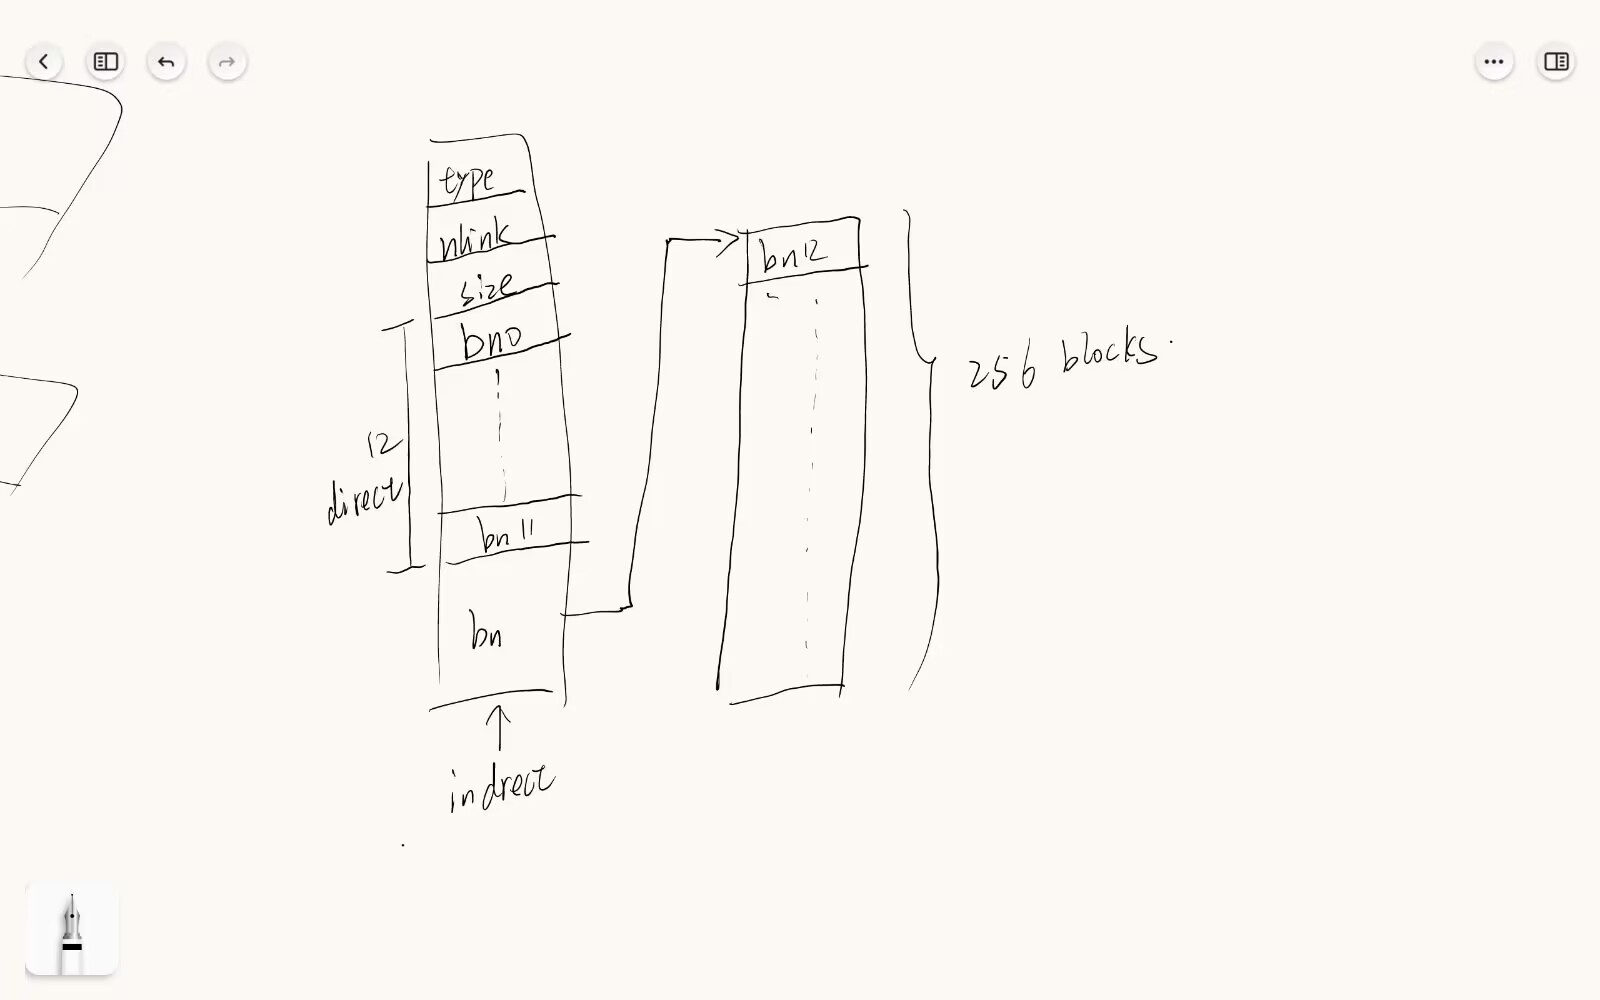 type
nlink
size
bn0
12
direct
bn 11
bn
indrect
bn12
256 blocks.